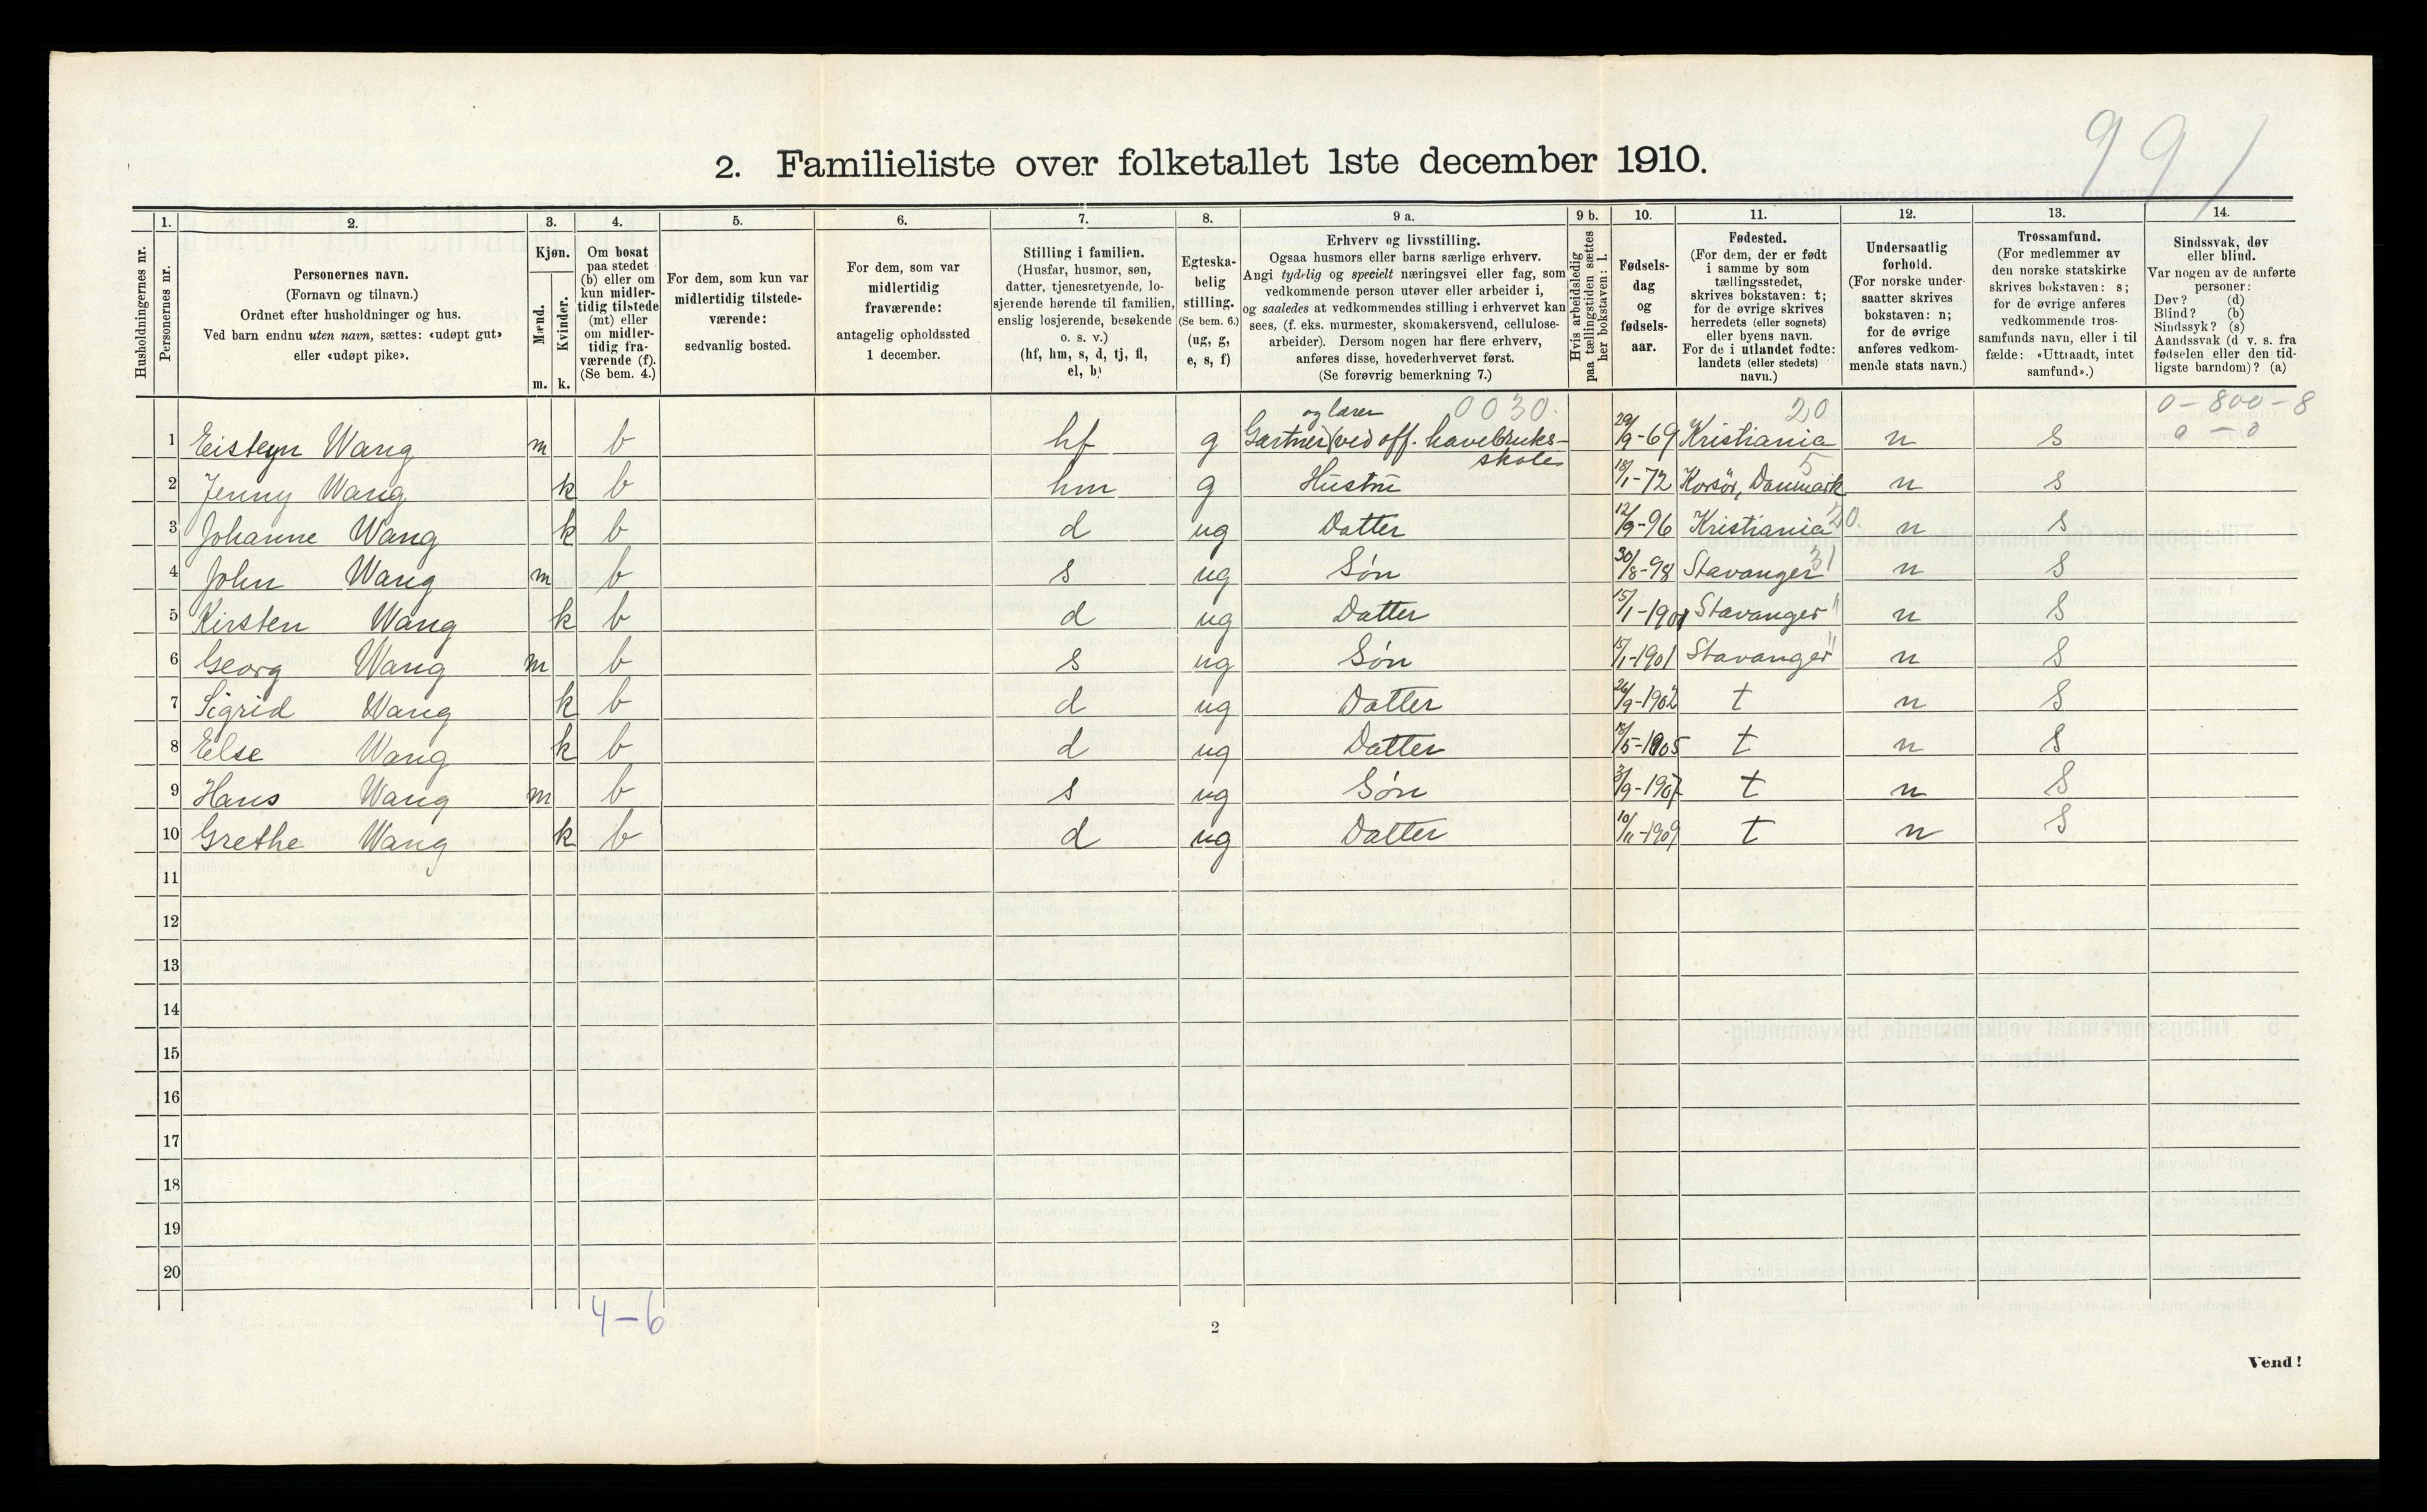 991
2. Familieliste over folketallet 1ste december 1910.
Husholdningernes nr.
1.
Personernes nr.
2.
Personernes navn.
(Fornavn og tilnavn.)
Ordnet efter husholdninger og hus.
Ved barn endnu uten navn, sættes: «udøpt gut»
eller «udøpt pike».
3.
Kjøn.
Mænd.
Kvinder.
m. k.
4.
Om bosat
paa stedet
(b) eller om
kun midler-
tidig tilstede
(mt) eller
om midler-
tidig fra-
værende (f).
(Se bem. 4.)
5.
For dem, som kun var
midlertidig tilstede-
værende:
sedvanlig bosted.
6.
For dem, som var
midlertidig
fraværende:
antagelig opholdssted
1 december.
7.
Stilling i familien.
(Husfar, husmor, søn,
datter, tjenestetyende, lo-
sjerende hørende til familien,
enslig losjerende, besøkende
o. s. v.)
(hf, hm, s, d, tj, fl,
el, b)
8.
Egteska-
belig
stilling.
(Se bem. 6.)
(ug, g,
e, s, f)
9 a.
Erhverv og livsstilling.
Ogsaa husmors eller barns særlige erhverv.
Angi tydelig og specielt næringsvei eller fag, som
vedkommende person utøver eller arbeider i,
og saaledes at vedkommendes stilling i erhvervet kan
sees, (f. eks. murmester, skomakersvend, cellulose-
arbeider). Dersom nogen har flere erhverv,
anføres disse, hovederhvervet først.
(Se forøvrig bemerkning 7.)
9 b.
Hvis arbeidsledig
paa tællingstiden sættes
her bokstaven: l.
10.
Fødsels-
dag
og
fødsels-
aar.
11.
Fødested.
(For dem, der er født
i samme by som
tællingsstedet,
skrives bokstaven: t;
for de øvrige skrives
herredets (eller sognets)
eller byens navn.
For de i utlandet fødte:
landets (eller stedets)
navn.)
12.
Undersaatlig
forhold.
(For norske under-
saatter skrives
bokstaven: n;
for de øvrige
anføres vedkom-
mende stats navn.)
13.
Trossamfund.
(For medlemmer av
den norske statskirke
skrives bokstaven: s;
for de øvrige anføres
vedkommende tros-
samfunds navn, eller i til
fælde: «Uttraadt, intet
samfund».)
14.
Sindssvak, døv
eller blind.
Var nogen av de anførte
personer:
Døv? (d)
Blind? (b)
Sindssyk? (s)
Aandssvak (d v. s. fra
fødselen eller den tid-
ligste barndom)? (a)
og lærer 0030. 20 0-800-8
1 Eisteyn Wang m b hf g Gartner (ved off. havebruks- 29/9-69 Kristiania n s 0 - 0
skole 5
2 Jenny Wang k b hm g Hustru 18/1-72 Korsör, Danmark n s
3 Johanne Wang k b d ug Datter 12/9-96 Kristiania 20. n s
4 John Wang m b s ug Søn 30/8-98 Stavanger 31 n s
5 Kirsten Wang k b d ug Datter 15/1-1901 Stavanger " n s
6 Georg Wang m b s ug Søn 15/1-1901 Stavanger " n s
7 Sigrid Wang k b d ug Datter 26/9-1902 t n s
8 Else Wang k b d ug Datter 18/5-1905 t n s
9 Hans Wang m b s ug Søn 3/9-1907 t n s
10 Grethe Wang k b d ug Datter 10/11-1909 t n s
11
12
13
14
15
16
17
18
19
20
4-6
2
Vend!